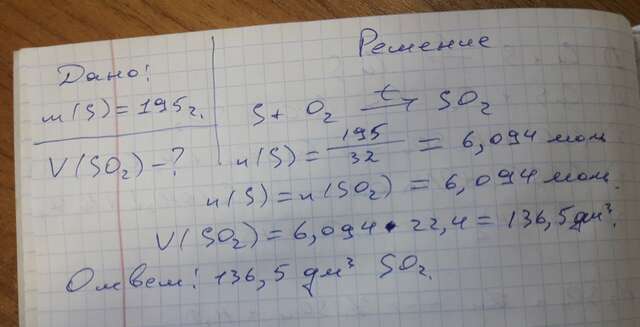 Дано:
m(S) = 195г.
V(SO₂) - ?
Решение
S + O₂ →ᵗ SO₂
n(S) = 195/32 = 6,094 моль
n(S) = n(SO₂) = 6,094 моль.
V(SO₂) = 6,094 • 22,4 = 136,5 дм³.
Ответ: 136,5 дм³ SO₂.